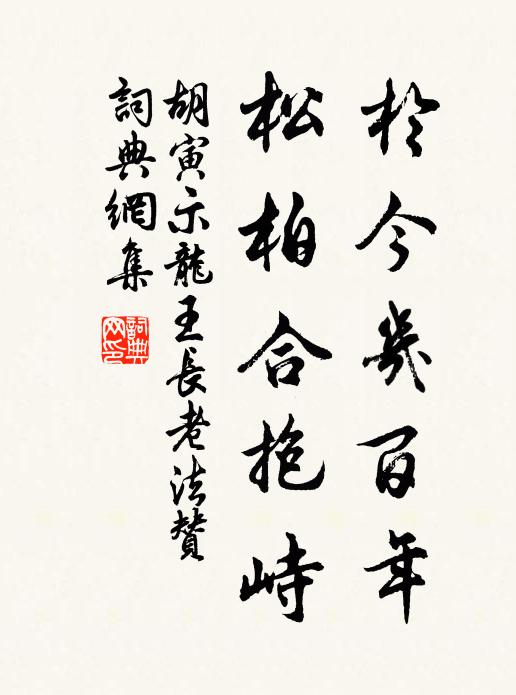 於今幾百年
松柏合抱峙
胡寅示龍王長老法贊
詞典網集
詞典網印